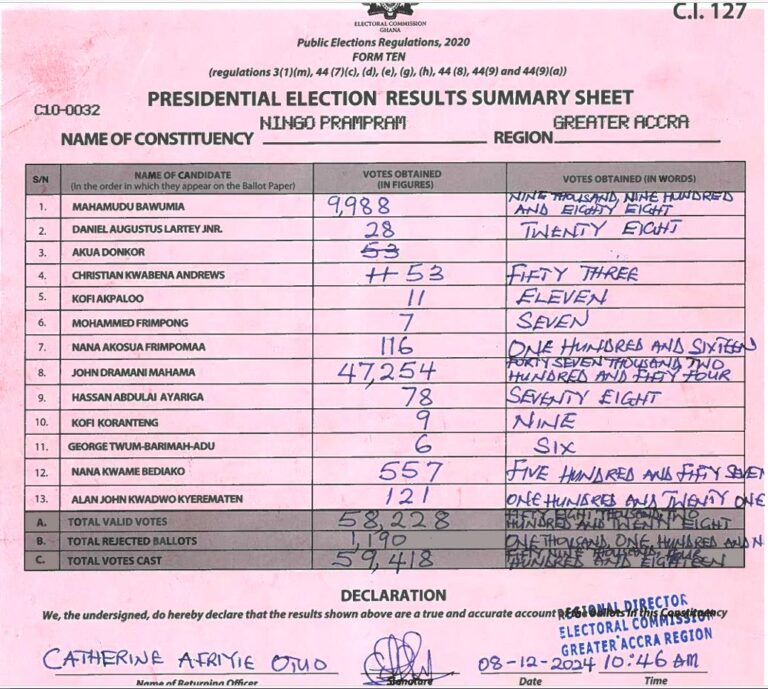 ELECTORAL COMMISSION
GHANA
C.I. 127
Public Elections Regulations, 2020
FORM TEN
(regulations 3(1)(m), 44 (7)(c), (d), (e), (g), (h), 44 (8), 44(9) and 44(9)(a))
C10-0032
PRESIDENTIAL ELECTION RESULTS SUMMARY SHEET
NAME OF CONSTITUENCY NINGO PRAMPRAM REGION GREATER ACCRA
S/N NAME OF CANDIDATE (In the order in which they appear on the Ballot Paper) VOTES OBTAINED (IN FIGURES) VOTES OBTAINED (IN WORDS)
1. MAHAMUDU BAWUMIA 9,988 NINE THOUSAND, NINE HUNDRED AND EIGHTY EIGHT
2. DANIEL AUGUSTUS LARTEY JNR. 28 TWENTY EIGHT
3. AKUA DONKOR 53
4. CHRISTIAN KWABENA ANDREWS 11 53 FIFTY THREE
5. KOFI AKPALOO 11 ELEVEN
6. MOHAMMED FRIMPONG 7 SEVEN
7. NANA AKOSUA FRIMPOMAA 116 ONE HUNDRED AND SIXTEEN
8. JOHN DRAMANI MAHAMA 47,254 FORTY SEVEN THOUSAND, TWO HUNDRED AND FIFTY FOUR
9. HASSAN ABDULAI AYARIGA 78 SEVENTY EIGHT
10. KOFI KORANTENG 9 NINE
11. GEORGE TWUM-BARIMAH-ADU 6 SIX
12. NANA KWAME BEDIAKO 557 FIVE HUNDRED AND FIFTY SEVEN
13. ALAN JOHN KWADWO KYEREMATEN 121 ONE HUNDRED AND TWENTY ONE
A. TOTAL VALID VOTES 58,228 FIFTY EIGHT THOUSAND, TWO HUNDRED AND TWENTY EIGHT
B. TOTAL REJECTED BALLOTS 1,190 ONE THOUSAND, ONE HUNDRED AND N
C. TOTAL VOTES CAST 59,418 FIFTY NINE THOUSAND, FOUR HUNDRED AND EIGHTEEN
DECLARATION
We, the undersigned, do hereby declare that the results shown above are a true and accurate account of the ballots in this Constituency
REGIONAL DIRECTOR
ELECTORAL COMMISSION
GREATER ACCRA REGION
CATHERINE AFRIYIE OTUO 08-12-2024 10:46 AM
Name of Returning Officer Signature Date Time